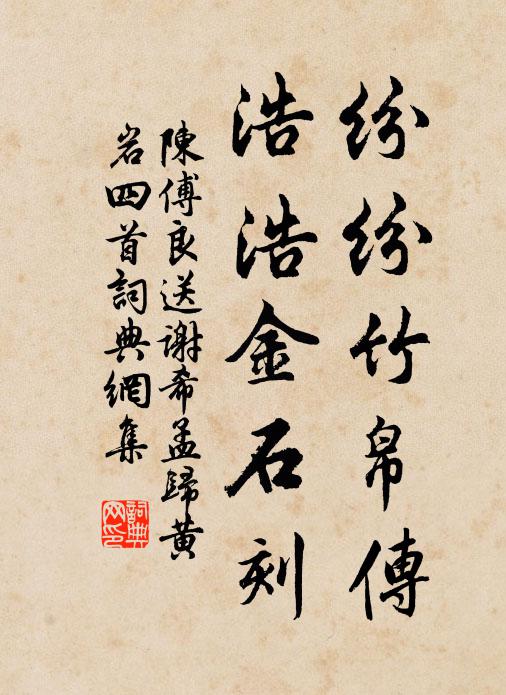 紛紛竹帛傳
浩浩金石刻
陳傅良送謝希孟歸黃
岩四首詞典網集
詞典网印